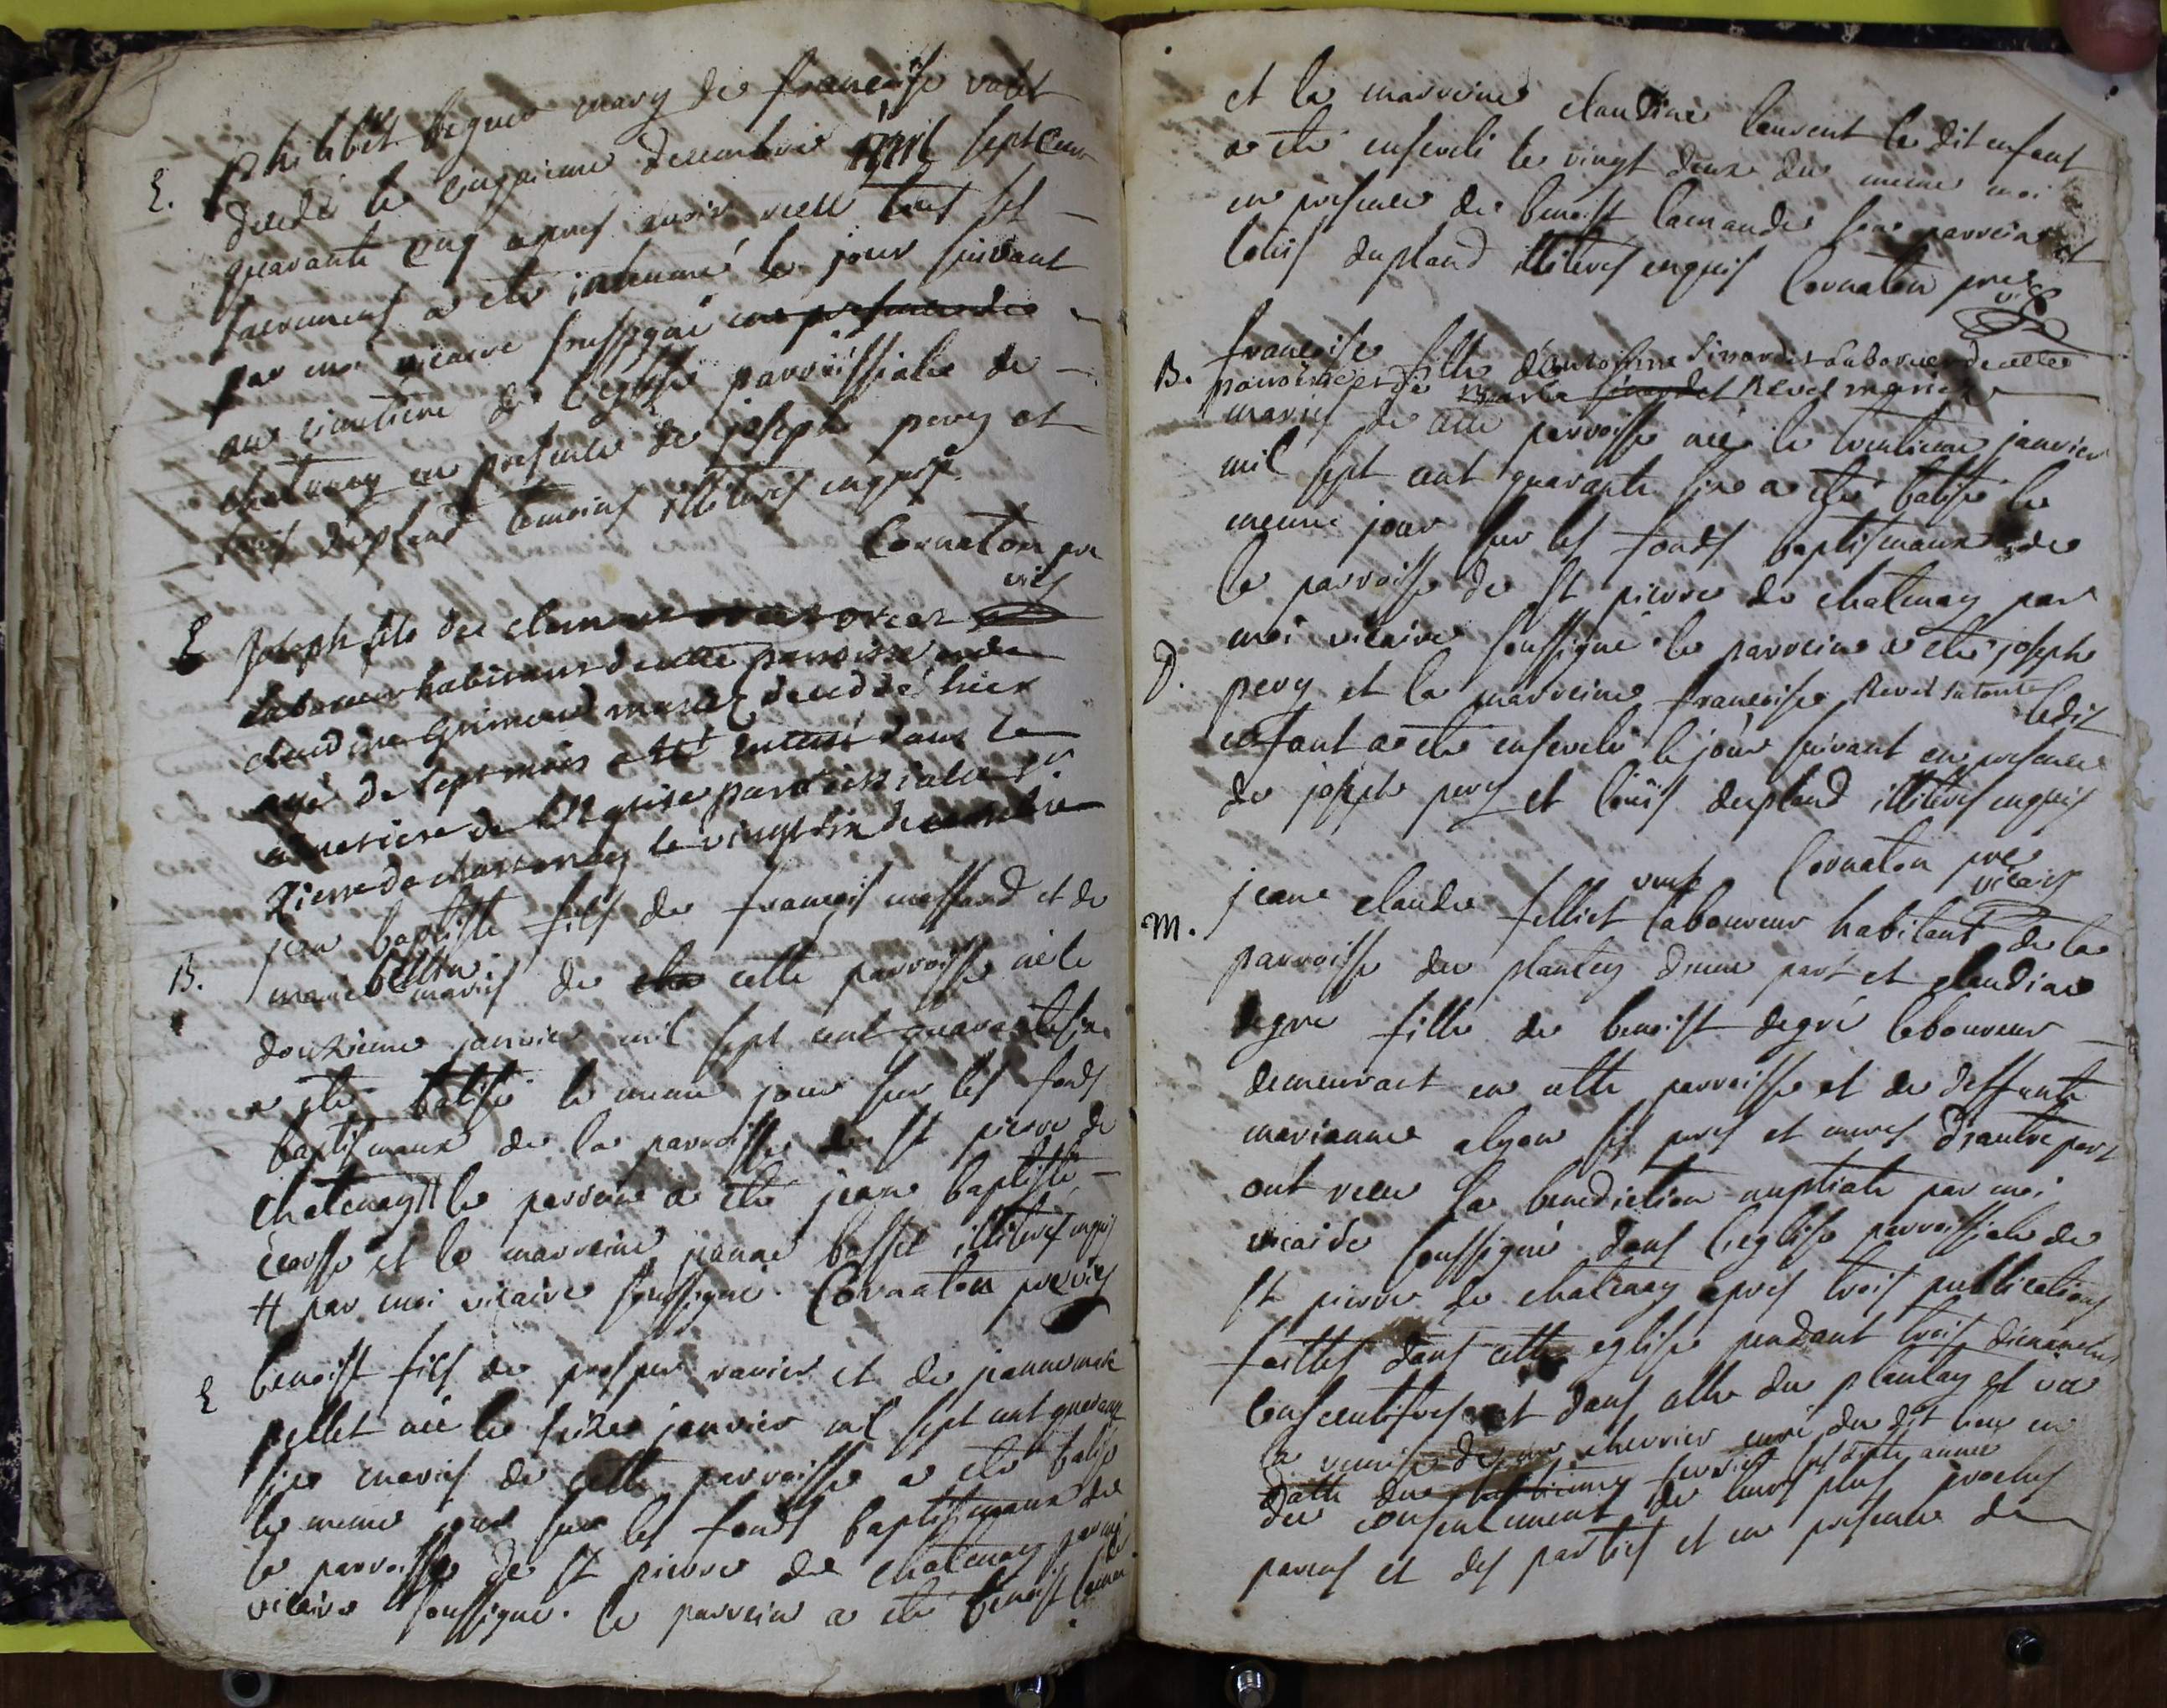 E. philibet beguer mary de francoise valet
decedé le cinqieme decembre mil sept cens
quarante cinq apres avoir receu tous ses
sacremens a ete inhumé le jour suivant
par moi vicaire soussigné en presence de
au cimetiere de l'eglise parroissiale de
chatenay en presence de joseph pery et
louis dupland temoins illiteres enquis
Cornaton pre
vics
E Joseph fils de
laboureur habitant de cette parroisse et de
claudine mariez decedé hier
agé de sept mois a été enterré dans le
cimetiere de l'Eglise parroissialle St
Pierre de chattenay le vingt six decembre
B. jean baptiste fils de francois massard et de
marie bellon mariés de cette parroisse né le
douzieme janvier mil sept cent quarante six
a ete batisé le meme jour sur les fonds
baptismaux de la parroisse de st pierre de
chatenay # le parrein a ete jean baptiste
ecosse et la marreine jeanne basset illiteres enquis
# par moi vicaire soussigné. Cornaton pre vics
E benoist fils de prosper ravier et de jeanne marie
pellet né le seize janvier mil sept cent quarante
six mariés de cette parroisse a ete batisé
le meme jour sur les fonds baptismaux de
la parroisse de st pierre de chatenay par moi
vicaire soussigné. le parrein a ete benoist laman
et la marreine claudine laurent le dit enfant
a ete enseveli le vingt deux du meme moi
en presence de benoist lamande son parrein et
louis dupland illiteres enquis Cornaton pre
vics
B. francoise fille d'antoinne Sirardet Laboureur de cette
parroisse et de Revel mariez
mariés de cette parroisse née le trentieme janvier
mil sept cent quarante six a ete batisée le
meme jour sur les fonds baptismaux de
la parroisse de st pierre de chatenay par
moi vicaire soussigné le parrein a ete joseph
D. pery et la marreine francoise Revel sa tante ledit
enfant a ete enseveli le jour suivant en presence
de joseph pery et louis dupland illiteres enquis
Cornaton pre
vicaire
M. jean claude felliet veuf laboureur habitant de la
parroisse du plantey d'une part et claudine
degré fille de benoist degré laboureur
demeurant en cette parroisse et de deffunte
marianne ses peres et meres d'autre part
ont receu la benediction nuptiale par moi
vicaire soussigné dans l'eglise parroissiale de
st pierre de chatenay apres trois publications
faittes dans cette eglise pendant trois dimanches
consecutifs et dans celle du plantay et veu
la remise de mr chevrier curé du dit lieu en
datte du fevrier presente année
du consentement de leurs plus proches
parens et des parties et en presence de